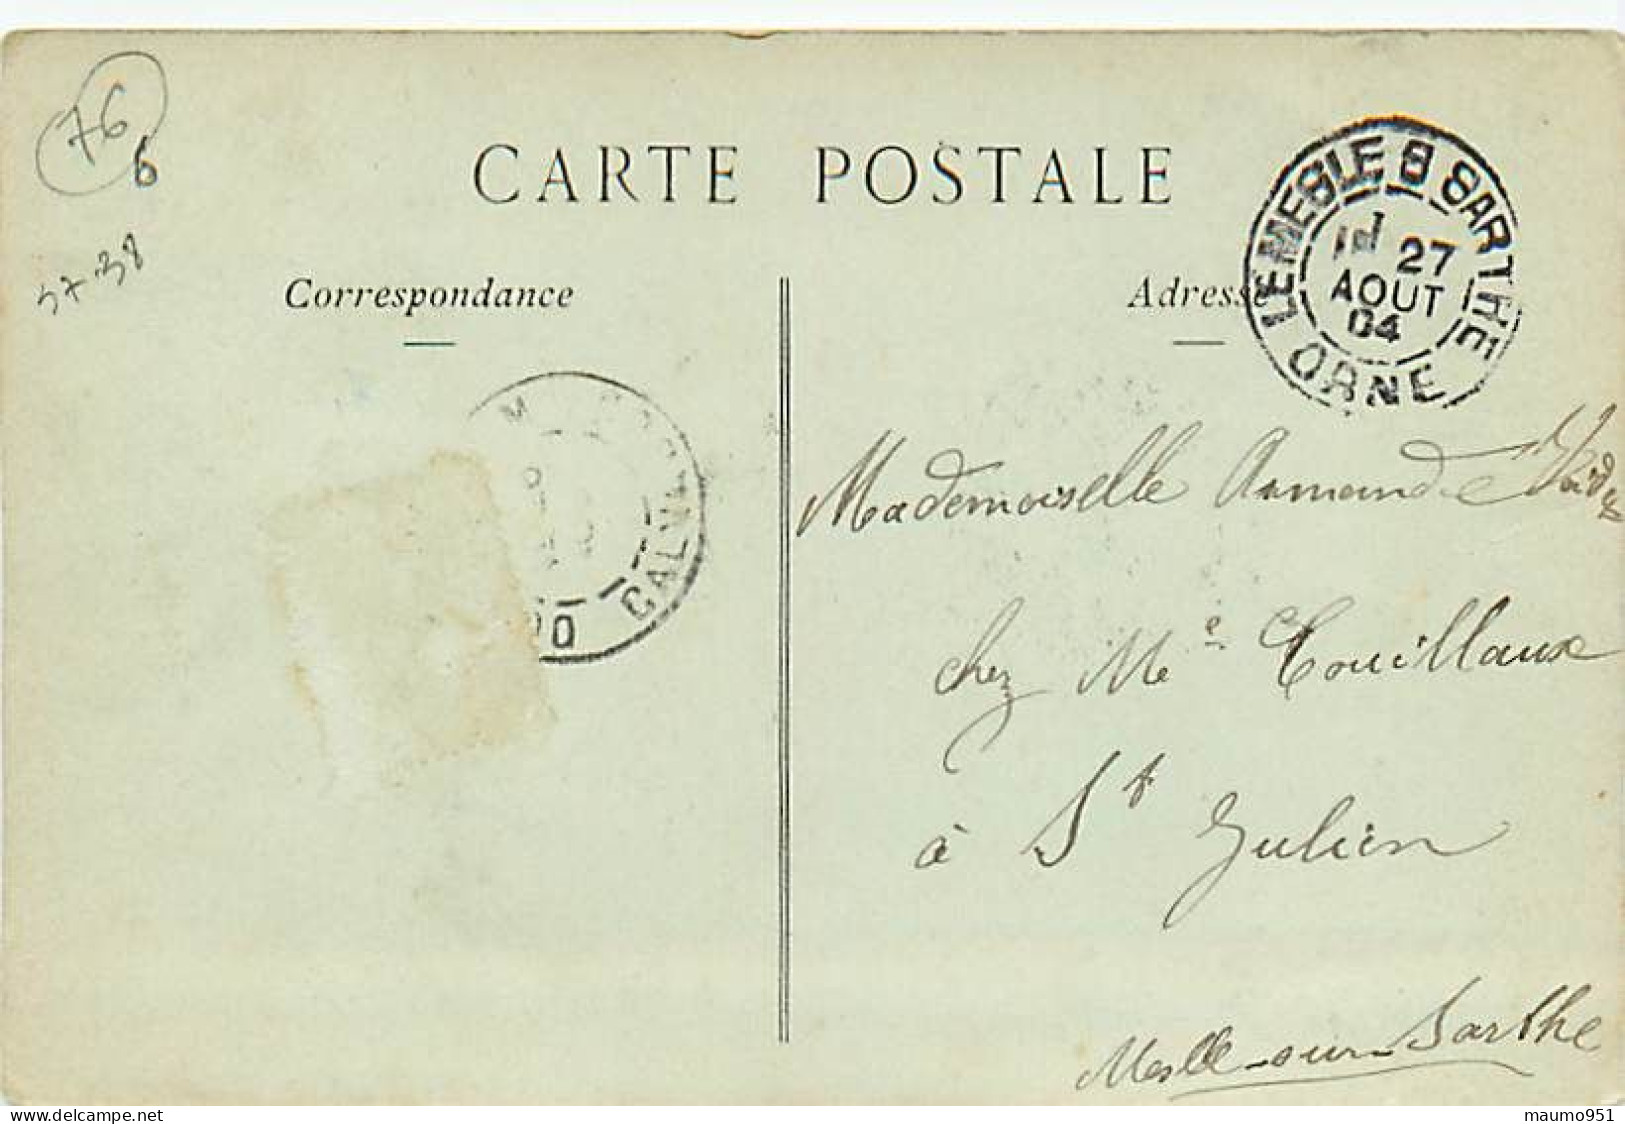 76
6
57-38
CARTE POSTALE
Correspondance
Adresse
LE MESLE S SARTHE
27
AOUT
04
ORNE
CALV
Mademoiselle Armande
chez Me Couillaux
à St Julien
Meslle-sur-Sarthe
maumo951